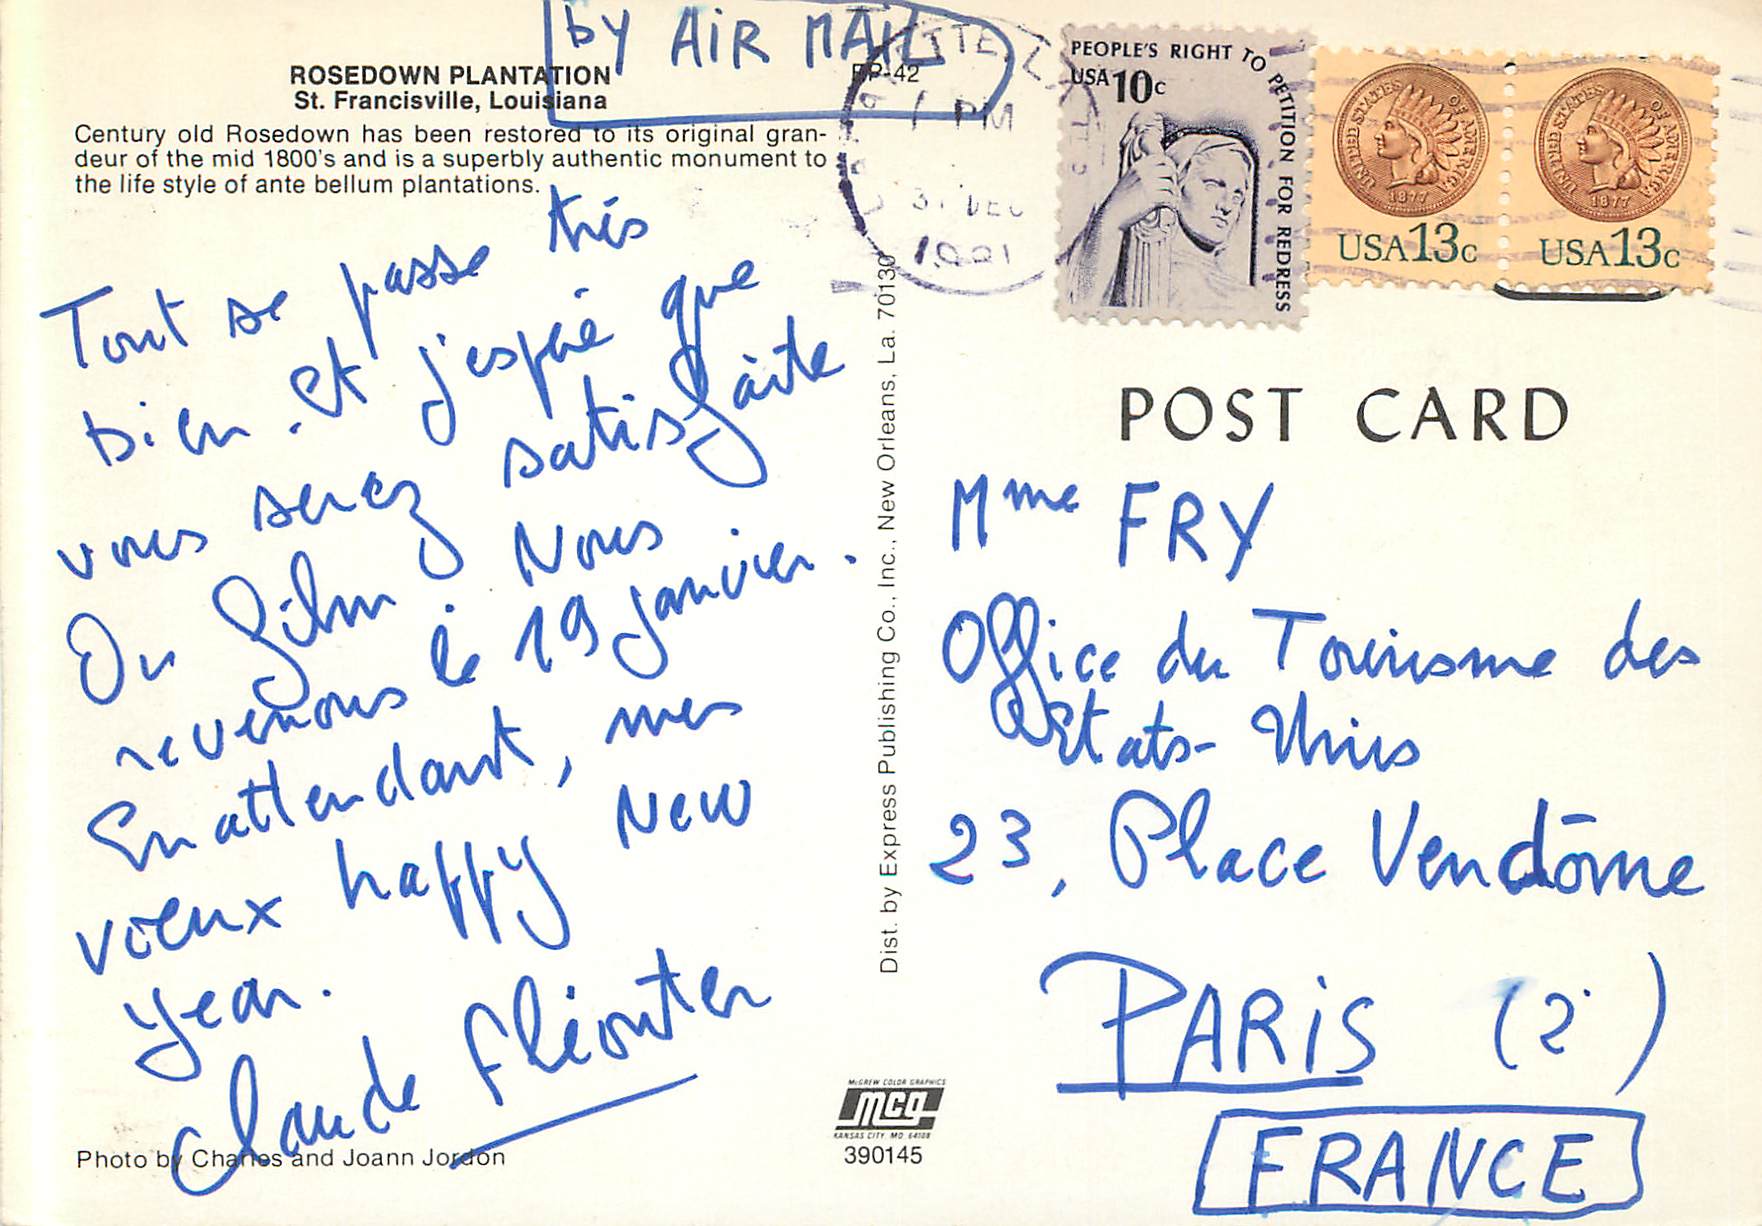 by AIR MAIL
ROSEDOWN PLANTATION
St. Francisville, Louisiana
RP-42
Century old Rosedown has been restored to its original gran-
deur of the mid 1800's and is a superbly authentic monument to
the life style of ante bellum plantations.
Tout se passe très
bien. Et j'espère que
vous serez satisfaite
Du film Nous
revenons le 19 janvier.
En attendant, mes
vœux happy New
Year.
Claude Fléouter
Photo by Charles and Joann Jordon
Dist. by Express Publishing Co., Inc., New Orleans, La. 70130
McGREW COLOR GRAPHICS
mcg
KANSAS CITY, MO. 64108
390145
1 PM
31 DEC
1981
PEOPLE'S RIGHT TO PETITION FOR REDRESS
USA 10c
UNITED STATES OF AMERICA
1877
USA 13c
UNITED STATES OF AMERICA
1877
USA 13c
POST CARD
Mme FRY
Office du Tourisme des
Etats-Unis
23, Place Vendôme
PARIS (2)
FRANCE